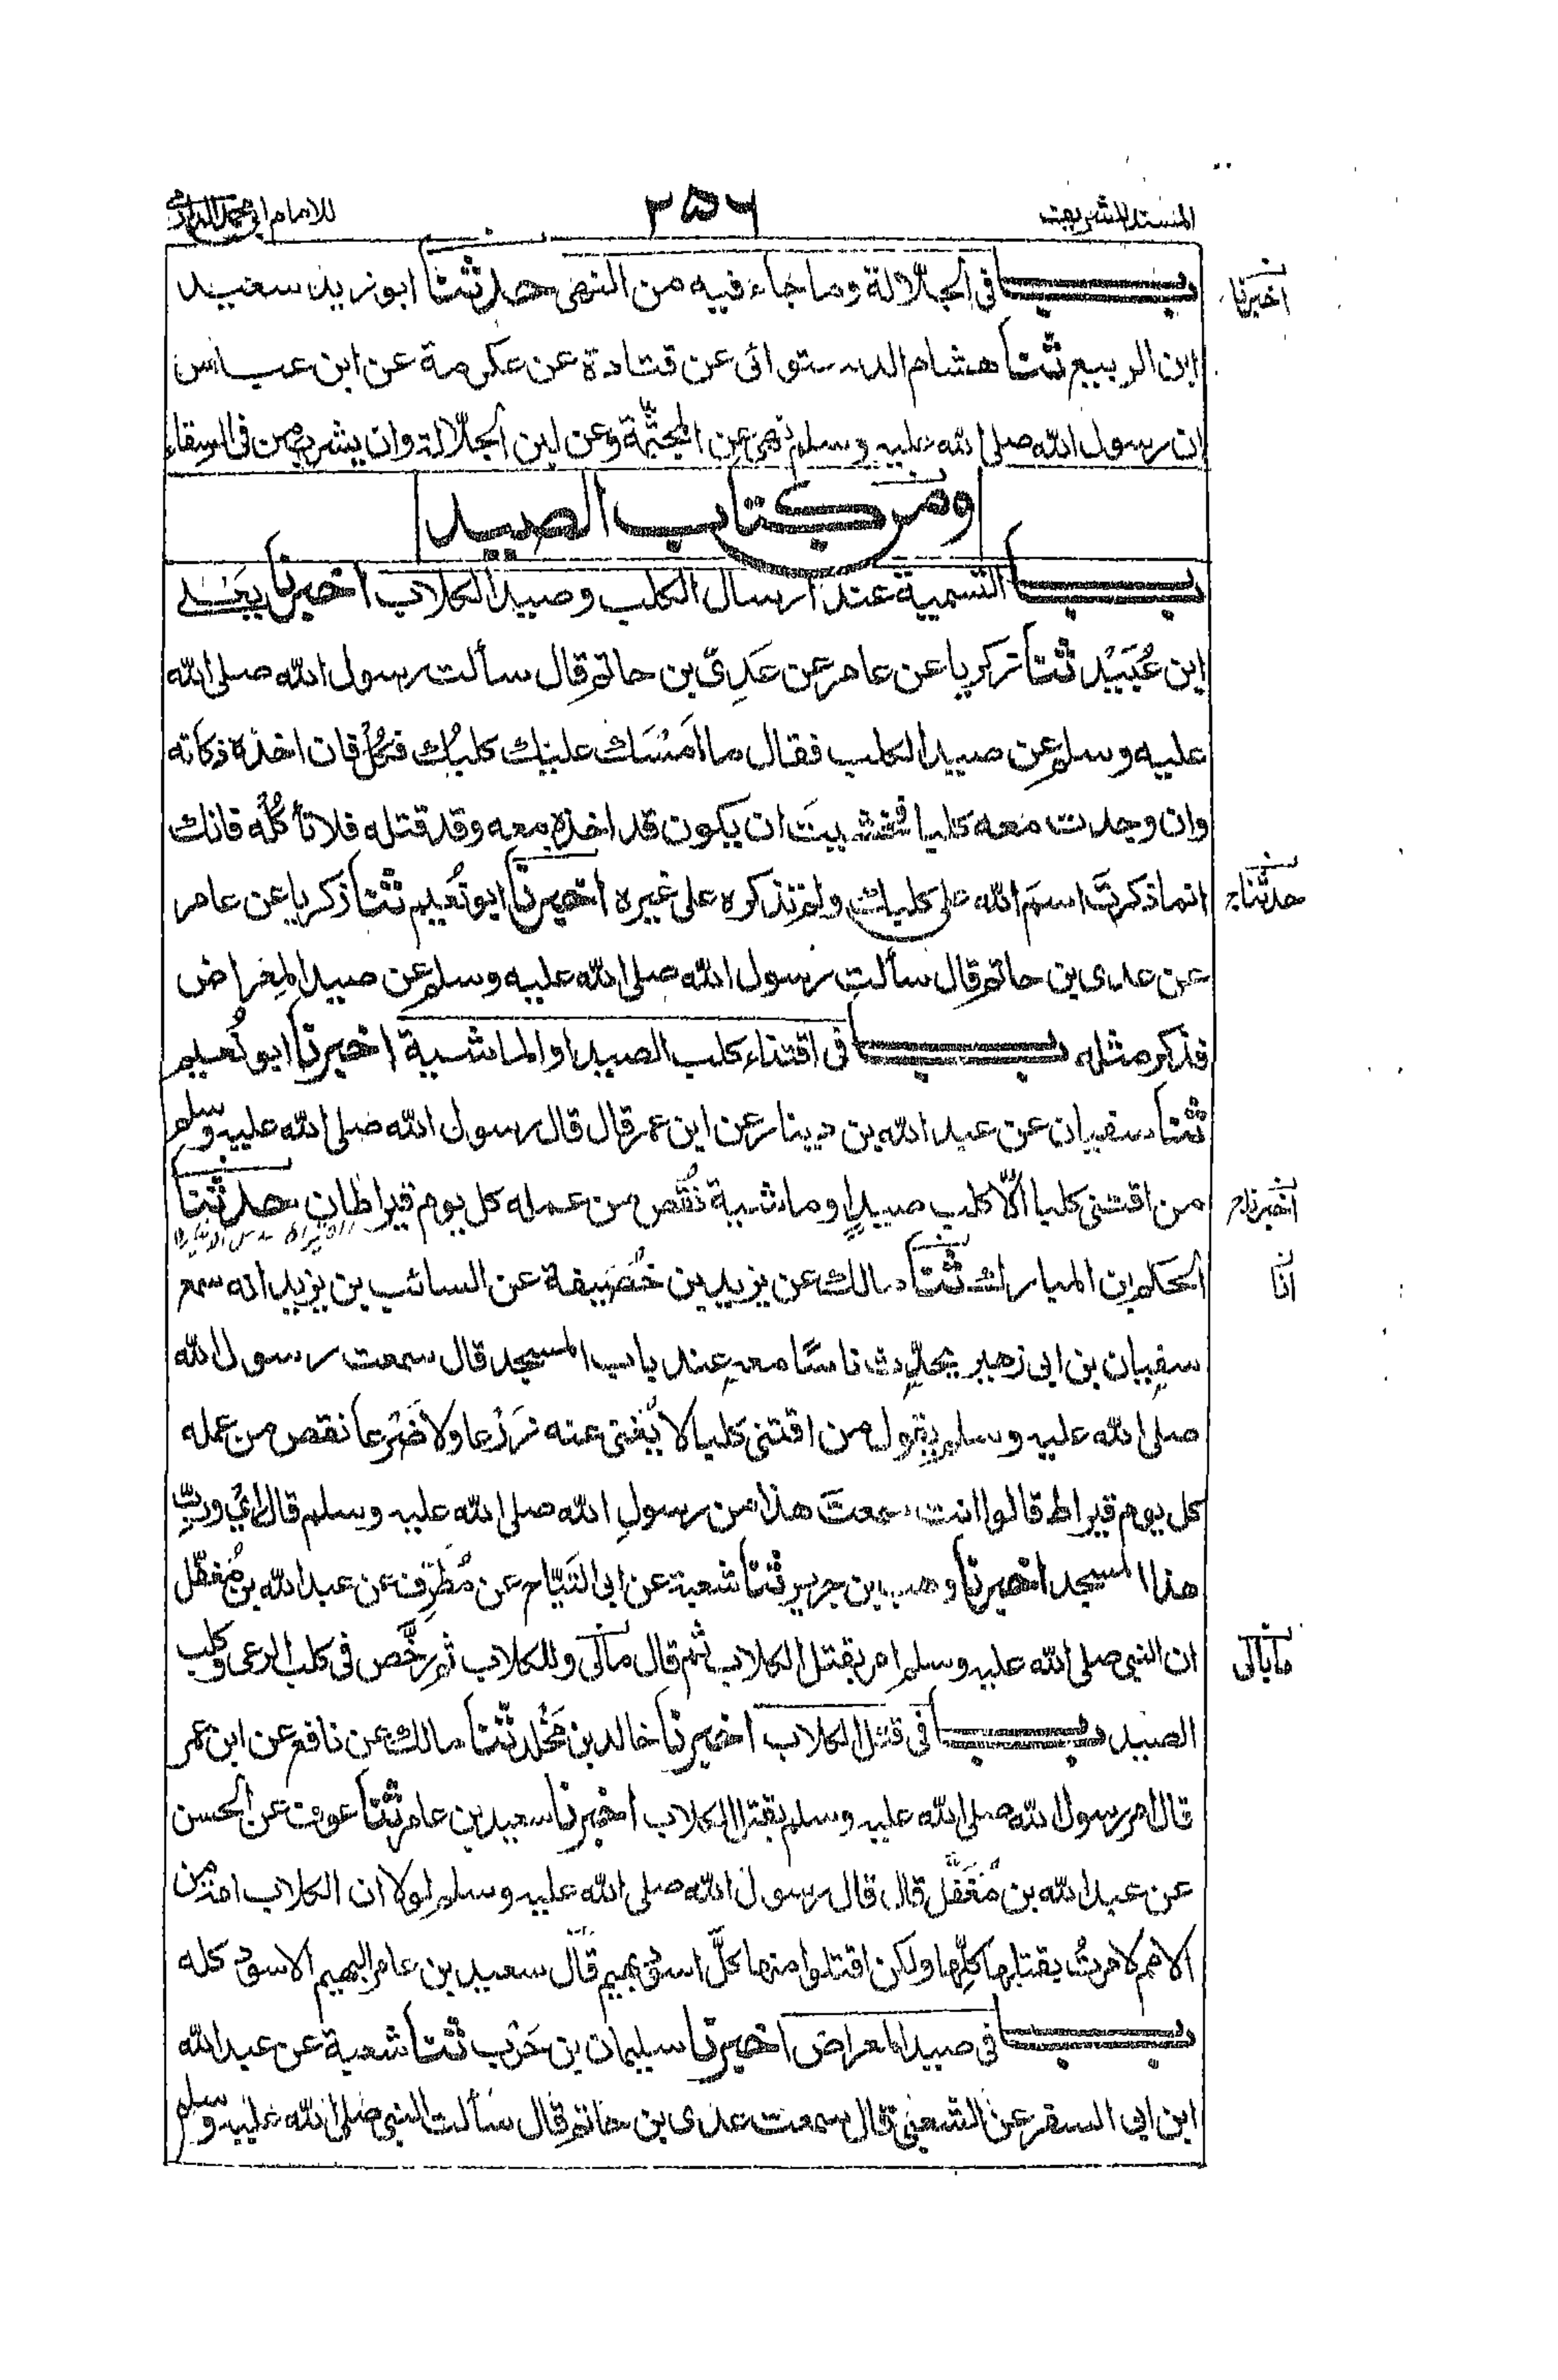 المسند الشريف
٢٥٦
للامام ابي محمد الدارمي
باب في الجلّالة وما جاء فيه من النهى حدثنا ابو زيد سعيد
اخبرنا
ابن الربيع ثنا هشام الدستوائى عن قتادة عن عكرمة عن ابن عباس
ان رسول الله صلى الله عليه وسلم نهى عن المجثّمة وعن لبن الجلّالة وان يشرب من فى السقاء
ومن كتاب الصيد
باب التسمية عند ارسال الكلب وصيد الكلاب اخبرنا يَعْلى
ابن عُبَيْد ثنا زكريا عن عامر عن عَدِىّ بن حاتم قال سألت رسول الله صلى الله
عليه وسلم عن صيد الكلب فقال ما اَمْسَك عليك كلبُك فكُلْ فان اخذه ذكاته
وان وجدت معه كلبا فخشيتَ ان يكون قد اخذه معه وقد قتله فلا تأكُلْه فانك
انما ذكرتَ اسمَ الله على كلبك ولم تذكره على غيره اخبرنا ابو نُعيم ثنا زكريا عن عامر
حدثنا
عن عدى بن حاتم قال سألت رسول الله صلى الله عليه وسلم عن صيد المِعراض
فذكر مثله باب فى اقتناء كلب الصيد او الماشية اخبرنا ابو نُعيم
ثنا سفيان عن عبد الله بن دينار عن ابن عمر قال قال رسول الله صلى الله عليه وسلم
من اقتنى كلبا الّا كلب صيدٍ او ماشية نُقص من عمله كل يوم قيراطان حدثنا
اخبرنا
الحكم بن المبارك ثنا مالك عن يزيد بن خُصَيفة عن السائب بن يزيد انه سمع
انا
سفيان بن ابى زهير يحدِّث ناسًا معه عند باب المسجد قال سمعت رسول الله
صلى الله عليه وسلم يقول من اقتنى كلبا لا يُغنى عنه زَرْعا ولا ضَرْعا نقص من عمله
كل يوم قيراط قالوا انت سمعتَ هذا من رسولِ الله صلى الله عليه وسلم قال اِيْ وربِّ
هذا المسجد اخبرنا وهب بن جرير ثنا شعبة عن ابى التَيّاح عن مُطَرِّف عن عبد الله بن مُغفّل
ان النبى صلى الله عليه وسلم امر بقتل الكلاب ثم قال مالى وللكلاب ثم رخّص فى كلب الرعى وكلب
ما بالى
الصيد باب فى قتل الكلاب اخبرنا خالد بن مَخْلد ثنا مالك عن نافع عن ابن عمر
قال امر رسول الله صلى الله عليه وسلم بقتل الكلاب اخبرنا سعيد بن عامر ثنا عوف عن الحسن
عن عبد الله بن مُغَفَّل قال قال رسول الله صلى الله عليه وسلم لولا ان الكلاب امة من
الامم لامرتُ بقتلها كلِّها ولكن اقتلوا منها كلَّ اسود بهيم قال سعيد بن عامر البهيم الاسود كله
باب فى صيد المعراض اخبرنا سليمان بن حَرْب ثنا شعبة عن عبد الله
ابن ابى السفر عن الشعبى قال سمعت عدى بن حاتم قال سألت النبى صلى الله عليه وسلم